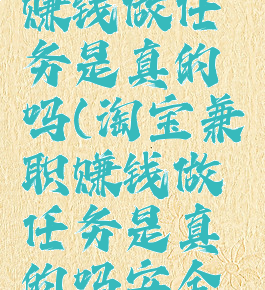 赚钱做任
务是真的
吗(淘宝兼
职赚钱做
任务是真
的吗安全